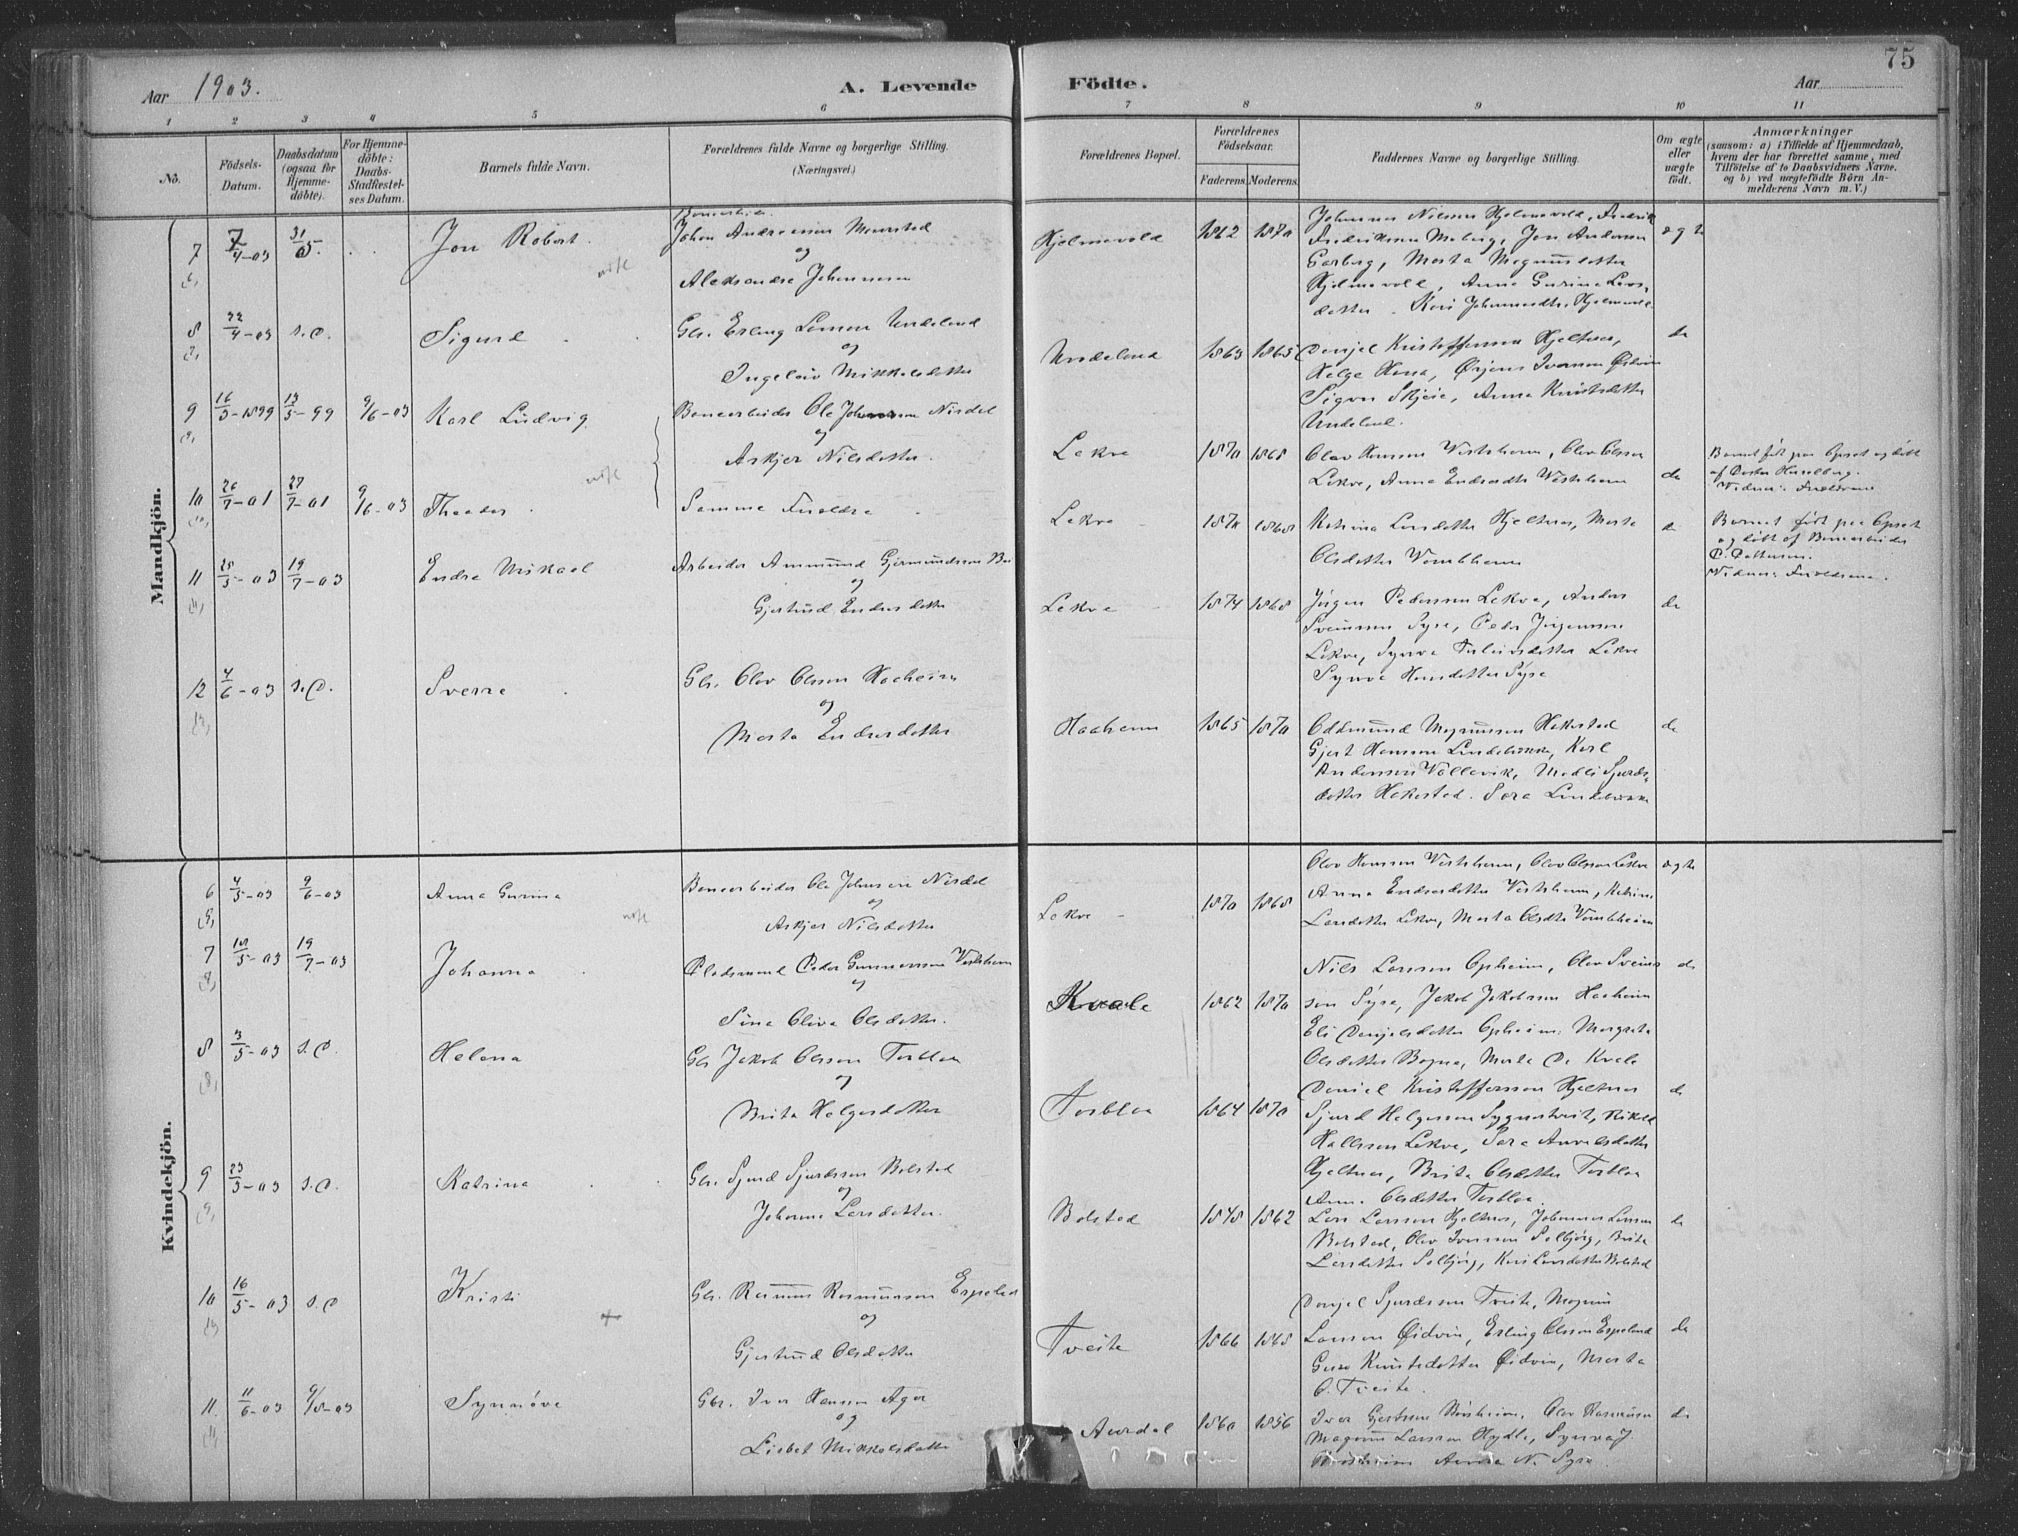 75
Aar 1903.
A. Levende
Födte.
Aar
1
2
3
4
5
6
7
8
9
10
11
No.
Födsels-
Datum.
Daabsdatum
(ogsaa for
Hjemme-
döbte).
For Hjemme-
döbte:
Daabs-
Stadfæstel-
ses Datum.
Barnets fulde Navn.
Forældrenes fulde Navne og borgerlige Stilling.
(Næringsvei.)
Forældrenes Bopæl.
Forældrenes
Födselsaar.
Faderens.
Moderens.
Faddernes Navne og borgerlige Stilling.
Om ægte
eller
uægte
födt.
Anmærkninger
(saasom: a) i Tilfælde af Hjemmedaab,
hvem der har forrettet samme, med
Tilföielse af to Daabsvidners Navne.
og b) ved uægtefödte Börn An-
melderens Navn m. V.)
Mandkjön.
7 7/4-03 31/5. Jon Robert.
Johan Andreassen
og
Aleksandra Johannesen
Hjelmevold 1862 1870
Johannes Nilssen Hjelmevold, Fredrik
Fredriksen Moberg, Jon Andersen
Garberg, Marta Magnusdatter
Hjelmevold, Anna Gurine Lars-
datter. Kari Johannesdtr. Hjelmevold.
ægte
8 22/4-03 s.D. Sigurd
Gbr. Erling Larsen Undeland
og
Ingeleiv Mikkelsdatter
Undeland 1863 1865
Danjel Kristoffersen Hjeltnes,
Helge Hana, Örjans Iversen Øidvin
Sigvor Skjeie, Anna Knutsdatter
Undeland.
do
9 16/5-1899 13/5-99 9/6-03 Karl Ludvig
Banearbeider Ole Johnsen Nisdal
og
Askjer Nilsdatter.
Lekve 1870 1868
Olav Hanssen Vestrheim, Olav Olsson
Lekve, Anna Endresdtr Vestrheim
do
Barnet født paa Opset og døbt
af Doktor Hasselberg.
Vidner: Forældrene
10 26/7-01 27/7-01 9/6-03 Theodor.
Samme Forældre
Lekve 1870 1868
Katrina Larsdatter Hjeltnes, Marta
Olsdatter Vambheim
do
Barnet født paa Opset
og døbt af Banearbeider
P. Pettersen.
Vidner: Forældrene.
11 25/5-03 19/7-03 Endre Mikael
Arbeider Ammund Gjermundsen
og
Gjertrud Endresdatter
Lekve 1874 1868
Jørgen Pedersen Lekve, Anders
Sveinsson Syse, Peder Jørgensen
Lekve, Synva Torleivsdatter Lekve
Synva Hansdatter Syse
do
12 4/6-03 s.D. Sverre
Gbr. Olav Olsson Haaheim
og
Marta Endresdatter
Haaheim 1865 1870
Oddmund Magnussen Hakestad
Gjert Hanssen Lindebrekke, Karl
Andersen Vallevik, Madli Sjurds-
datter Hakestad. Sara Lindebrekke
do
Kvindekjön.
6 4/5-03 9/6-03 Anna Gurina
Banearbeider Ole Johnsen Nisdal
og
Askjer Nilsdatter
Lekve 1870 1868
Olav Hanssen Vestrheim, Olav Olsson Lekve
Anna Endresdatter Vestrheim, Katrina
Larsdatter Lekve, Marta Olsdtr Vambheim
ægte
7 10/5-03 19/7-03 Johanna
Pladsmand Peder Gunnarsson Vestrheim
og
Sina Oliva Olsdatter.
Kvale 1862 1870
Nils Larsson Opheim, Olav Sveins-
son Syse, Jakob Jakobsson Haaheim
Eli Danjelsdatter Opheim, Margreta
Olsdatter Bagna, Marta D. Kvale
do
8 3/5-03 s.D. Helena
Gbr Jakob Olsson Torbloa
og
Brita Helgesdatter
Torbloa 1864 1870
Daniel Kristoffersson Hjeltnes
Sjurd Helgesson Sygnestveit, Rikold
Hallsson Lekve, Sara Arvelsdatter
Hjeltnes, Brita Olsdatter Torbloa
Anna Olsdatter Torbloa.
do
9 23/3-03 s.D. Katrina
Gbr. Sjurd Sjurdsson Bolstad
og
Johanna Larsdatter.
Bolstad 1848 1862
Lars Larsson Hjeltnes, Johannes Larsson
Bolstad, Olav Iversson Solbjørg, Brita
Larsdatter Solbjørg, Kari Larsdatter Bolstad
do
10 16/5-03 s.D Kristi
Gbr. Rasmus Rasmussen Espeland
og
Gjertrud Olsdatter
Tveite 1866 1868
Danjel Sjurdsson Tveite, Magnus
Larsson Øidvin, Erling Olsson Espeland
Guro Knutsdatter Øidvin, Marta
O. Tveite.
do
11 11/6-03 9/8-03 Synnöve
Gbr. Iver Hansson Aga
og
Lisbet Mikkelsdatter
Aurdal 1860 1856
Iver Gjertson, Olav Rasmussen
Magnus Larsson Hydle, Synva J.
Anna N. Syse.
do